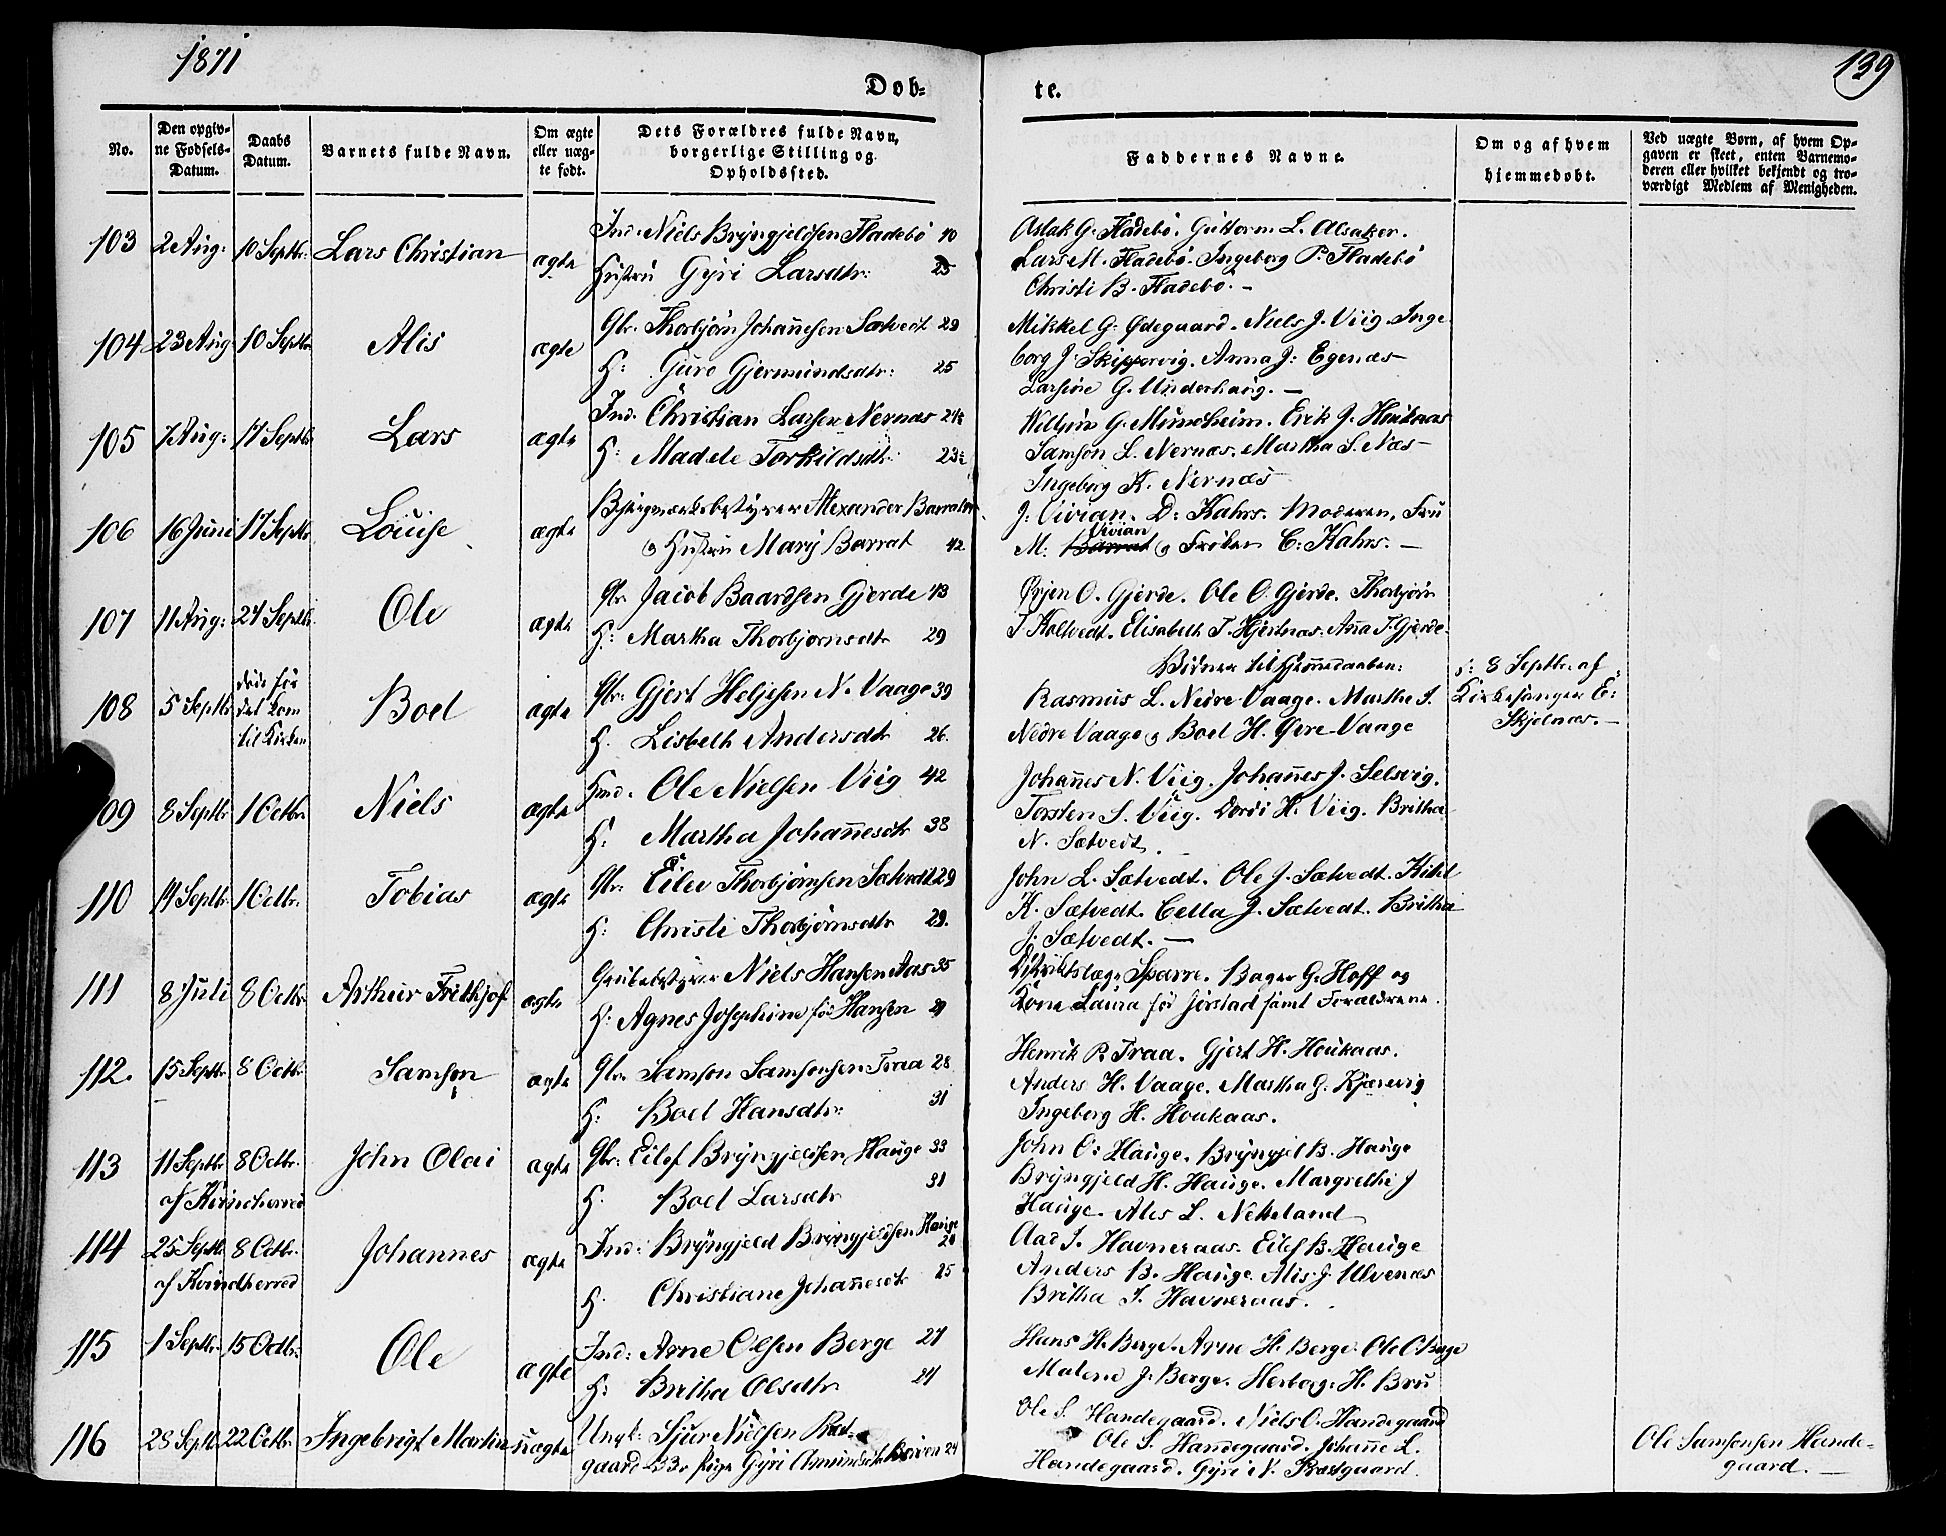 1871
139
Døb-
te.
No.
Den opgiv-
ne Fødsels-
Datum.
Daabs
Datum.
Barnets fulde Navn.
Om ægte
eller uæg-
te født.
Dets Forældres fulde Navn,
borgerlige Stilling og
Opholdssted.
Faddernes Navne.
Om og af hvem
hjemmedøbt.
Ved uægte Børn, af hvem Op-
gaven er skeet, enten Barnemo-
deren eller hvilket bekjendt og tro-
værdigt Medlem af Menigheden.
103 2 Aug: 10 Septbr: Lars Christian ægte Ind: Niels Bryngjeldsen Fladebø 40
Hustru Gyri Larsdtr: 25
Aslak G. Fladebø. Guttorm L. Alsaker.
Lars M. Fladebø. Ingeborg P. Fladebø
Christi B. Fladebø. -
104 23 Aug 10 Septbr Alis ægte Gbr. Thorbjørn Johannesen Sætvedt 29
H: Guro Gjermundsdtr: 25
Mikkel G. Ødegaard. Niels J. Viig. Inge
borg J. Skippervig. Anna J: Egenæs
G. Underhaug. -
105 7 Aug: 17 Septbr Lars ægte Ind: Christian Larsen Nernæs 24½
H: Madele Torkildsdtr: 23½
G. Mundheim. Erik J. Houkaas
Samson L. Nernæs. Martha S. Næs
Ingeborg K. Nernæs
106 16 Juni 17 Septbr. Louise ægte Bjergværksbestyrer Alexander Barrat
og Hustru Mary Barrat 42
J: Vivian. D: Kahrs. Moderen, Fru
M: Barrat Vivian og Frøken C: Kahrs. -
107 11 Aug: 24 Septbr. Ole ægte Gbr. Jacob Baardsen Gjerde 43
H: Martha Thorbjørnsdtr 29
Ørjen O. Gjerde. Ole O. Gjerde. Thorbjørn
T. Koltvedt. Elisabeth T. Hjertnæs. Anna T. Gjerde.
108 5 Septbr døde før
det kom
til Kirken Boel ægte Gbr: Gjert Heljesen N. Vaage 39
H. Lisbeth Andersdtr 26.
Vidner til Hjemmedaaben:
Rasmus L. Nedre Vaage. Marthe S.
Nedre Vaage og Boel H. Øvre Vaage
d: 8 Septbr. af
Kirkesanger E:
Skjelnæs. -
109 8 Septbr 1 Octbr. Niels ægte Hmd. Ole Nielsen Viig 42
H: Martha Johannesdtr 38
Johannes N. Viig. Johannes J. Selsvig.
Torsten S. Viig. Dordi H. Viig. Britha
N. Sætvedt.
110 14 Septbr. 1 Octbr. Tobias ægte Gbr: Eilev Thorbjørnsen Sætvedt 29
H: Christi Thorbjørnsdtr 29.
John L. Sætvedt. Ole J. Sætvedt. Kittel
K. Sætvedt. Cella J. Sætvedt. Britha
J. Sætvedt. -
111 8 Juli 8 Octbr Arthur Frithjof ægte Grubebestyrer Niels Hansen Aas 35
H: Agnes Josephine før Hansen
Distriktslæge Sparre. Bager G. Hoff og
Kone Laura før Jørstad samt Forældrene.
112. 15 Septbr 8 Octbr. Samson ægte Gbr. Samson Samsonsen Traa 28
H: Boel Hansdtr: 31
Henrik P. Traa. Gjert H. Houkaas.
Anders H. Vaage. Martha G. Kjærevig
Ingeborg H. Houkaas.
113 11 Septbr 8 Octbr. John Olai ægte Gbr: Eilef Bryngjeldsen Hauge 33
af Kvindherred H. Boel Larsdtr 31
John O: Hauge. Bryngjel B. Hauge
Bryngjeld H. Hauge. Margrethe J
Hauge. Alis L. Netteland
114 25 Septbr 8 Octbr. Johannes ægte Ind: Bryngjeld Bryngjeldsen Hauge 20
af Kvindherred H. Christiane Johannesdtr 25
Aad J. Havneraas. Eilef B. Hauge
Anders B. Hauge. Alis J. Ulvenæs
Britha J. Havneraas.
115 1 Septbr. 15 Octbr. Ole ægte Ind: Arne Olsen Berge 27
H: Britha Olsdtr 24
Hans H. Berge. Arne H. Berge. Ole O. Berge
Malene J. Berge. Herborg H. Bru
116 28 Septbr 22 Octbr. Ingebrigt Martin uægte Ungk: Sjur Nielsen Præst-
gaard 33. Pige Gyri Amundsdtr Røiven 24
Ole S. Handegaard. Niels O. Handegaard
Ole S. Handegaard. Johanne L.
Handegaard. Gyri N. Præstgaard.
Ole Samsonsen Hande-
gaard. -